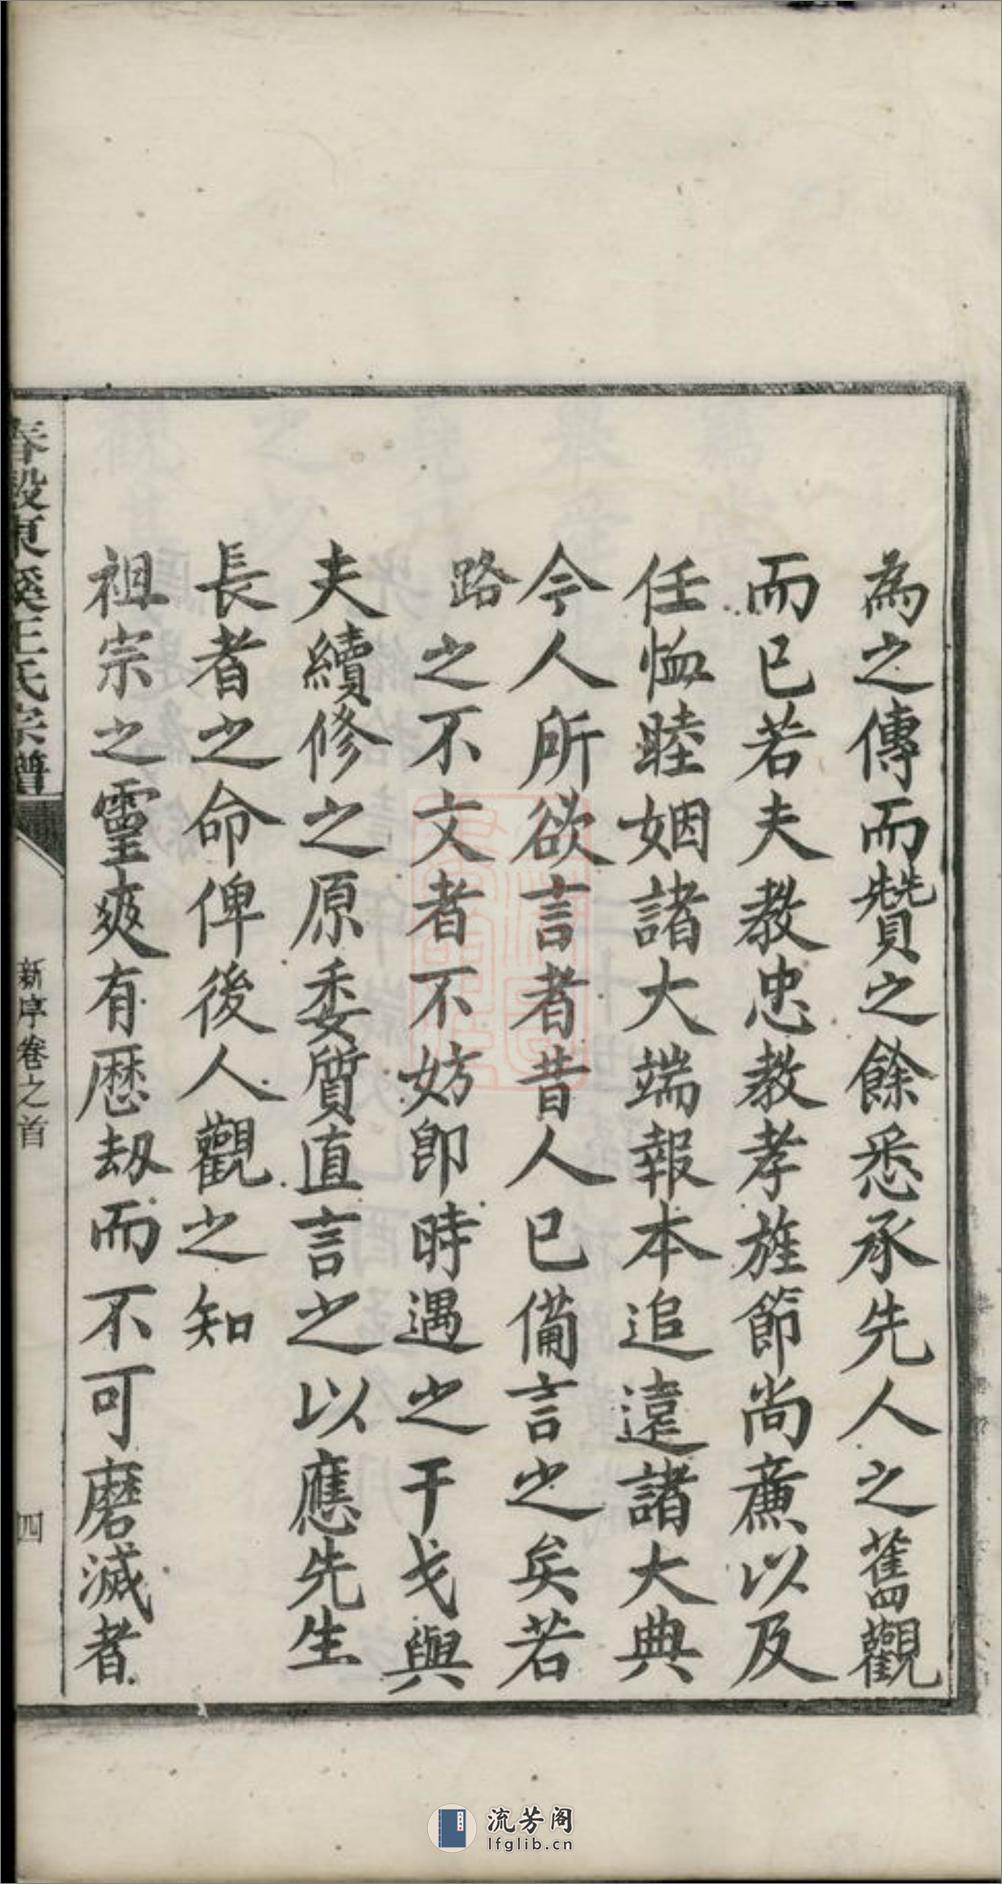 為之傳而贊之餘悉承先人之舊觀
而已若夫教忠教孝旌節尚亷以及
任恤睦姻諸大端報本追遠諸大典
今人所欲言者昔人已備言之矣若
路之不文者不妨即時遇之干戈與
夫續修之原委質直言之以應先生
長者之命俾後人觀之知
祖宗之靈爽有歷劫而不可磨滅者
春穀東溪王氏宗譜
新序卷之首
四
流芳阁
lfglib.cn